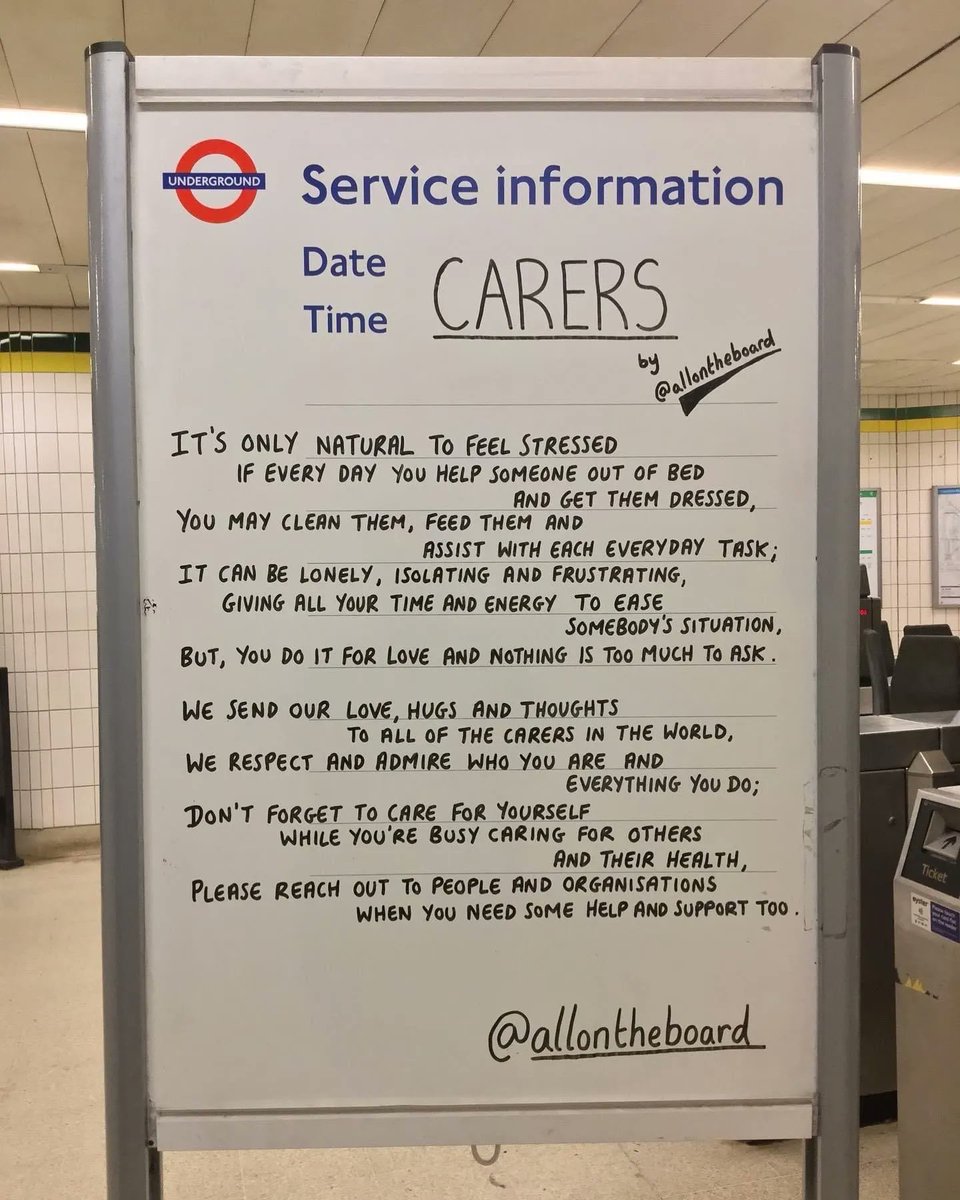 UNDERGROUND
Service information
Date
Time
CARERS
by
@allontheboard
IT'S ONLY NATURAL TO FEEL STRESSED
IF EVERY DAY YOU HELP SOMEONE OUT OF BED
AND GET THEM DRESSED,
YOU MAY CLEAN THEM, FEED THEM AND
ASSIST WITH EACH EVERYDAY TASK;
IT CAN BE LONELY, ISOLATING AND FRUSTRATING,
GIVING ALL YOUR TIME AND ENERGY TO EASE
SOMEBODY'S SITUATION,
BUT, YOU DO IT FOR LOVE AND NOTHING IS TOO MUCH TO ASK.
WE SEND OUR LOVE, HUGS AND THOUGHTS
TO ALL OF THE CARERS IN THE WORLD,
WE RESPECT AND ADMIRE WHO YOU ARE AND
EVERYTHING YOU DO;
DON'T FORGET TO CARE FOR YOURSELF
WHILE YOU'RE BUSY CARING FOR OTHERS
AND THEIR HEALTH,
PLEASE REACH OUT TO PEOPLE AND ORGANISATIONS
WHEN YOU NEED SOME HELP AND SUPPORT TOO.
@allontheboard
Ticket
oyster